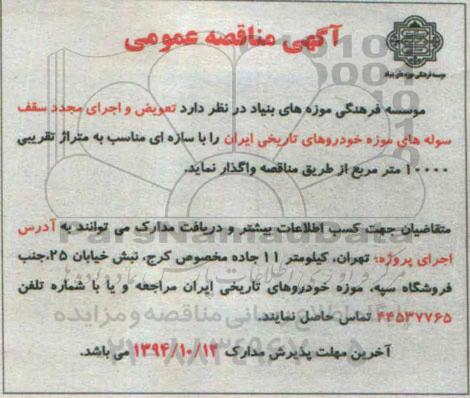 آگهی مناقصه عمومی
موسسه فرهنگی موزه های بنیاد
موسسه فرهنگی موزه های بنیاد در نظر دارد تعویض و اجرای مجدد سقف
سوله های موزه خودروهای تاریخی ایران را با سازه ای مناسب به متراژ تقریبی
۱۰۰۰۰ متر مربع از طریق مناقصه واگذار نماید.
متقاضیان جهت کسب اطلاعات بیشتر و دریافت مدارک می توانند به آدرس
اجرای پروژه: تهران، کیلومتر ۱۱ جاده مخصوص کرج، نبش خیابان ۲۵،جنب
فروشگاه سپه، موزه خودروهای تاریخی ایران مراجعه و یا با شماره تلفن
۴۴۵۳۷۷۶۵ تماس حاصل نمایند.
آخرین مهلت پذیرش مدارک ۱۳۹۴/۱۰/۱۳ می باشد.
ParsNamadData